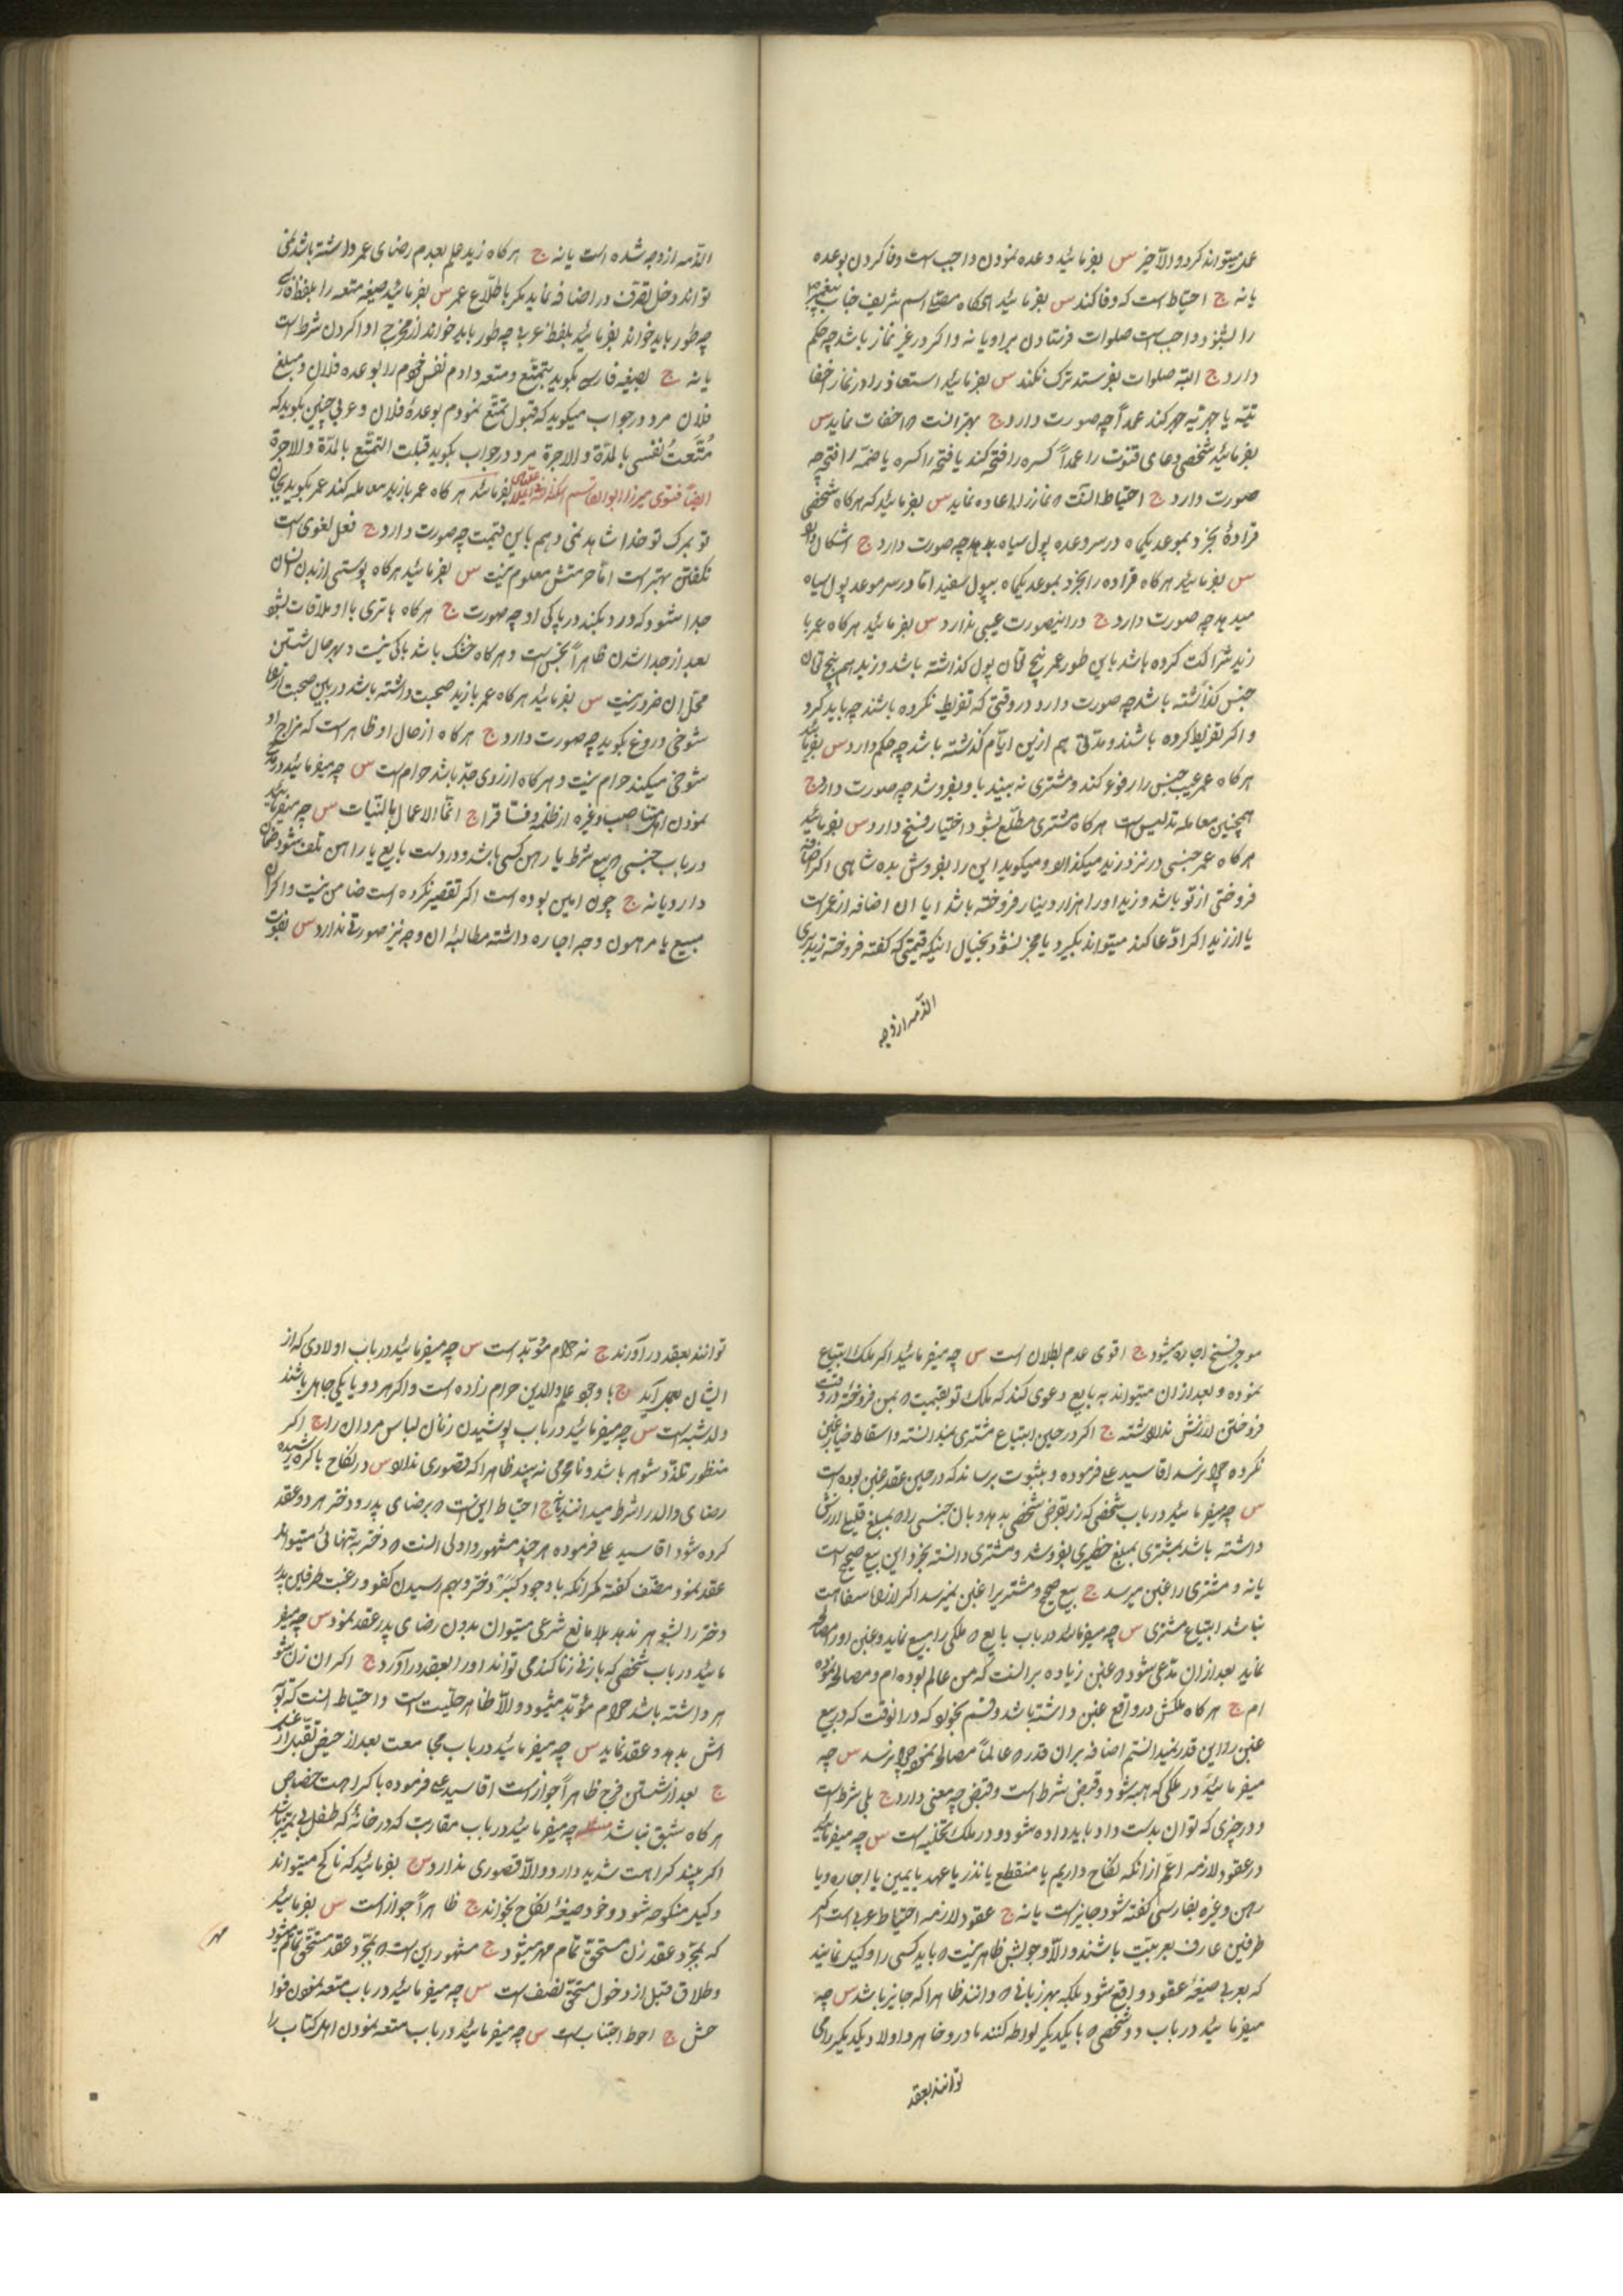 عدر میتواند کرد و الا خیر س بفرمائید وعده نمودن واجب است وفا کردن بوعده
یا نه ج احتیاط است که وفا کند س بفرمائید اسم شریف جناب پیغمبر
را بشنود واجب است صلوات فرستادن بر او یا نه و اکر در غیر نماز باشد چه حکم
دارد ج البته صلوات بفرستد ترک نکند س بفرمائید استعاذه را در نماز اخفا
یا جهریه جهر کند عمداً چه صورت دارد ج بهتر انست که اخفات نماید س
بفرمائید شخصی دعای قنوت را عمداً کسره را فتحه کند یا فتحه را کسره یا ضمه را فتحه چه
صورت دارد ج احتیاط انست که نماز را اعاده نماید س بفرمائید که هرکاه شخصی
بخرد بموعد یکماه و در سر وعده پول سیاه بدهد چه صورت دارد ج اشکال دارد
س بفرمائید هرکاه را بخرد بموعد یکماه بپول سفید اما در سر موعد پول سیاه
میدهد چه صورت دارد ج در اینصورت عیبی ندارد س بفرمائید هرکاه عمر با
زید شراکت کرده باشد باین طور عمر پنج تمان پول کذاشته باشد و زید هم پنج تمان
جنس کذاشته باشد چه صورت دارد در وقتی که تفریط نکرده باشند چه باید کرد
و اکر تفریط کرده باشند و مدتی هم ازین ایام کذشته باشد چه حکم دارد س بفرمائید
هرکاه عمر عیب جنس را رفوع کند و مشتری نه بیند با و بفروشد چه صورت دارد ج
همچنین معامله تدلیس است هرکاه مشتری مطلع بشود اختیار فسخ دارد س بفرمائید
هرکاه عمر جنسی در نزد زید میکذارد و میکوید این را بفروش بده شاهی اکر اضافه
فروختی از تو باشد و زید او را هزار دینار فروخته باشد ایا ان اضافه از عمر است
یا از زید اکر ادعا کند میتواند بکیرد یا مخبر نشود بخیال اینکه قیمتی که کفته فروخته زید بری
الذمه از وجه
الذمه از وجه شده است یا نه ج هرکاه زید علم بعدم رضای عمر داشته باشد نمی
تواند دخل تصرف در اضافه نماید مکر باطلاع عمر س بفرمائید صیغه متعه را بلفظ فارسی
چه طور باید خواند بفرمائید بلفظ عربی چه طور باید خواند از مخرج ادا کردن شرط است
یا نه ج بصیغه فارسی بکوید بتمتع و متعه دادم نفس خودم را بوعده فلان و مبلغ
فلان مرد در جواب میکوید که قبول تمتع نمودم بوعدهٔ فلان و عربی چنین بکوید که
مُتَّعتُ نفسی بالمدة و الاجرة مرد در جواب بکوید قبلت التمتع بالمدة و الاجرة
ایضاً فتوی میرزا ابوالقاسم بفرمائید هرکاه عمر با زید معامله کند عمر بکوید بجان
تو بمرک تو خدا شاهد نمی دهم باین قیمت چه صورت دارد ج فعل لغوی است
نکفتن بهتر است اما حرمتش معلوم نیست س بفرمائید هرکاه پوستی از بدن انسان
جدا شود که درد بکند در پاکی او چه صورت ج هرکاه با تری با او ملاقات بشود
بعد از جدا شدن ظاهراً نجس است و هرکاه خشک باشد باکی نیست و بهر حال شستن
محل ان ضرور نیست س بفرمائید هرکاه عمر با زید صحبت داشته باشد در بین صحبت از جا
شوخی دروغ بکوید چه صورت دارد ج هرکاه از حال او ظاهر است که مزاح او
شوخی میکند حرام نیست و هرکاه از روی جد باشد حرام است س چه میفرمائید در
نمودن مناصب و غیره از ظلمه و فساق را ج انما الاعمال بالنیات س چه میفرمائید
در باب جنسی که ببیع شرط یا رهن کسی باشد و در دست بایع یا راهن تلف شود ضمان
دارد یا نه ج چون امین بوده است اکر تقصیر نکرده است ضامن نیست و اکر ان
مبیع یا مرهون وجه اجاره داشته مطالبه ان وجه نیز صورتی ندارد س بفوت
موجر فسخ اجاره میشود ج اقوی عدم بطلان است س چه میفرمائید اکر ملک ابتیاع
نموده و بعد از ان میتواند به بایع دعوی کند که ملک تو بقیمت که بمن فروخته در وقت
فروختن ارزش نداشته ج اکر در حین ابتیاع مشتری نمیدانسته و اسقاط خیار غبن
نکرده چرا نرسد اقا سید علی فرموده و بثبوت برساند که در حین عقد غبن بوده است
س چه میفرمائید در باب شخصی که زر بقرض شخصی بدهد و بان جنسی را که بمبلغ قلیل ارزش
داشته باشد بمشتری بمبلغ خطیری بفروشد و مشتری دانسته بخرد این بیع صحیح است
یا نه و مشتری را غبن میرسد ج بیع صحیح و مشتری را غبن نمیرسد اکر از راه سفاهت
نباشد ابتیاع مشتری س چه میفرمائید در باب بایع که ملکی را مبیع نماید و غبن او را مصالحه
نماید بعد از ان مدعی شود که غبن زیاده بر انست که من عالم بوده ام و مصالحه نموده
ام ج هرکاه ملکش در واقع غبن داشته باشد و قسم بخورد که در انوقت که در بیع
غبن را این قدر نمیدانستم اضافه بر ان قدر که عالماً مصالحه نموده چرا نرسد س چه
میفرمائید در ملکی که هبه شود و قبض شرط است و قبض چه معنی دارد ج بلی شرط است
و در چیزی که توان بدست داد باید داده شود و در ملک تخلیه است س چه میفرمائید
در عقود لازمه اعم از انکه نکاح دایم یا منقطع یا نذر یا عهد یا یمین یا اجاره و یا
رهن و غیره بفارسی کفته شود جایز است یا نه ج عقود لازمه احتیاط عربی است اکر
طرفین عارف بعربیت باشند و الا وجوبش ظاهر نیست که باید کسی را وکیل نمایند
که بعربی صیغهٔ عقود واقع شود بلکه بهر زبانی که دانند ظاهرا که جایز باشد س چه
میفرمائید در باب دو شخصی که با یکدیکر لواطه کنند مادر و خواهر و اولاد یکدیکر را می
توانند بعقد
توانند بعقد در آورند ج نه حرام مؤبد است س چه میفرمائید در باب اولادی که از
ایشان بعمل آید ج با وجود علم والدین حرام زاده است و اکر هر دو یا یکی جاهل باشند
ولد شبهه است س چه میفرمائید در باب پوشیدن زنان لباس مردان را ج اکر
منظور تلذذ شوهر باشد و نامحرمی نه بیند ظاهرا که قصوری ندارد س در نکاح باکره رشیده
رضای والد را شرط میدانند یا نه ج احتیاط این است که برضای پدر و دختر هر دو عقد
کرده شود اقا سید علی فرموده هر چند مشهور و اولی انست که دختر به تنهائی میتواند
عقد نمود مصنف کفته مکر انکه با وجود کبر دختر و بهم رسیدن کفو و رغبت طرفین پدر
دختر را بشوهر ندهد بلا مانع شرعی میتوان بدون رضای پدر عقد نمود س چه میفر
مائید در باب شخصی که با زنی زنا کند می تواند او را بعقد در آورد ج اکر ان زن شو
هر داشته باشد حرام مؤبد میشود و الا ظاهر حلیت است و احتیاط انست که توبه
اش بدهد و عقد نماید س چه میفرمائید در باب مجامعت بعد از حیض قبل از غسل
ج بعد از شستن فرج ظاهراً جواز است اقا سید علی فرموده با کراهت خصوص
هرکاه شبق نباشد مسئله چه میفرمائید در باب مقاربت که در خانهٔ که طفل بی تمیز باشد
اکر بیند کراهت شدید دارد و الا قصوری ندارد س بفرمائید که ناکح میتواند
وکیل منکوحه شود و خود صیغهٔ نکاح بخواند ج ظاهراً جواز است س بفرمائید
که بمجرد عقد زن مستحق تمام مهر میشود ج مشهور این است که بمجرد عقد مستحق تمام میشود
مهر
و طلاق قبل از دخول مستحق نصف است س چه میفرمائید در باب متعه نمودن فوا
حش ج احوط اجتناب است س چه میفرمائید در باب متعه نمودن اهل کتاب را